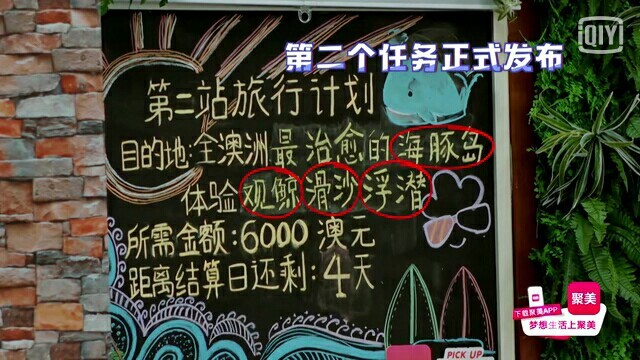 iQIYI
第二个任务正式发布
第二站旅行计划
目的地:全澳洲最治愈的海豚岛
体验观鲸滑沙浮潜
所需金额:6000澳元
距离结算日还剩:4天
聚美
下载聚美APP
梦想生活上聚美
PICK UP